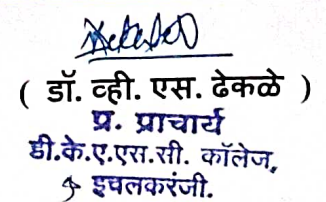 ( डॉ. व्ही. एस. ढेकळे )
प्र. प्राचार्य
डी.के.ए.एस.सी. कॉलेज,
इचलकरंजी.